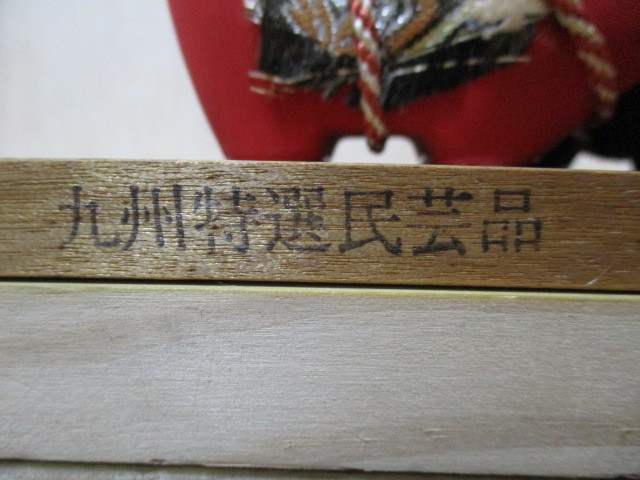 九州特選民芸品